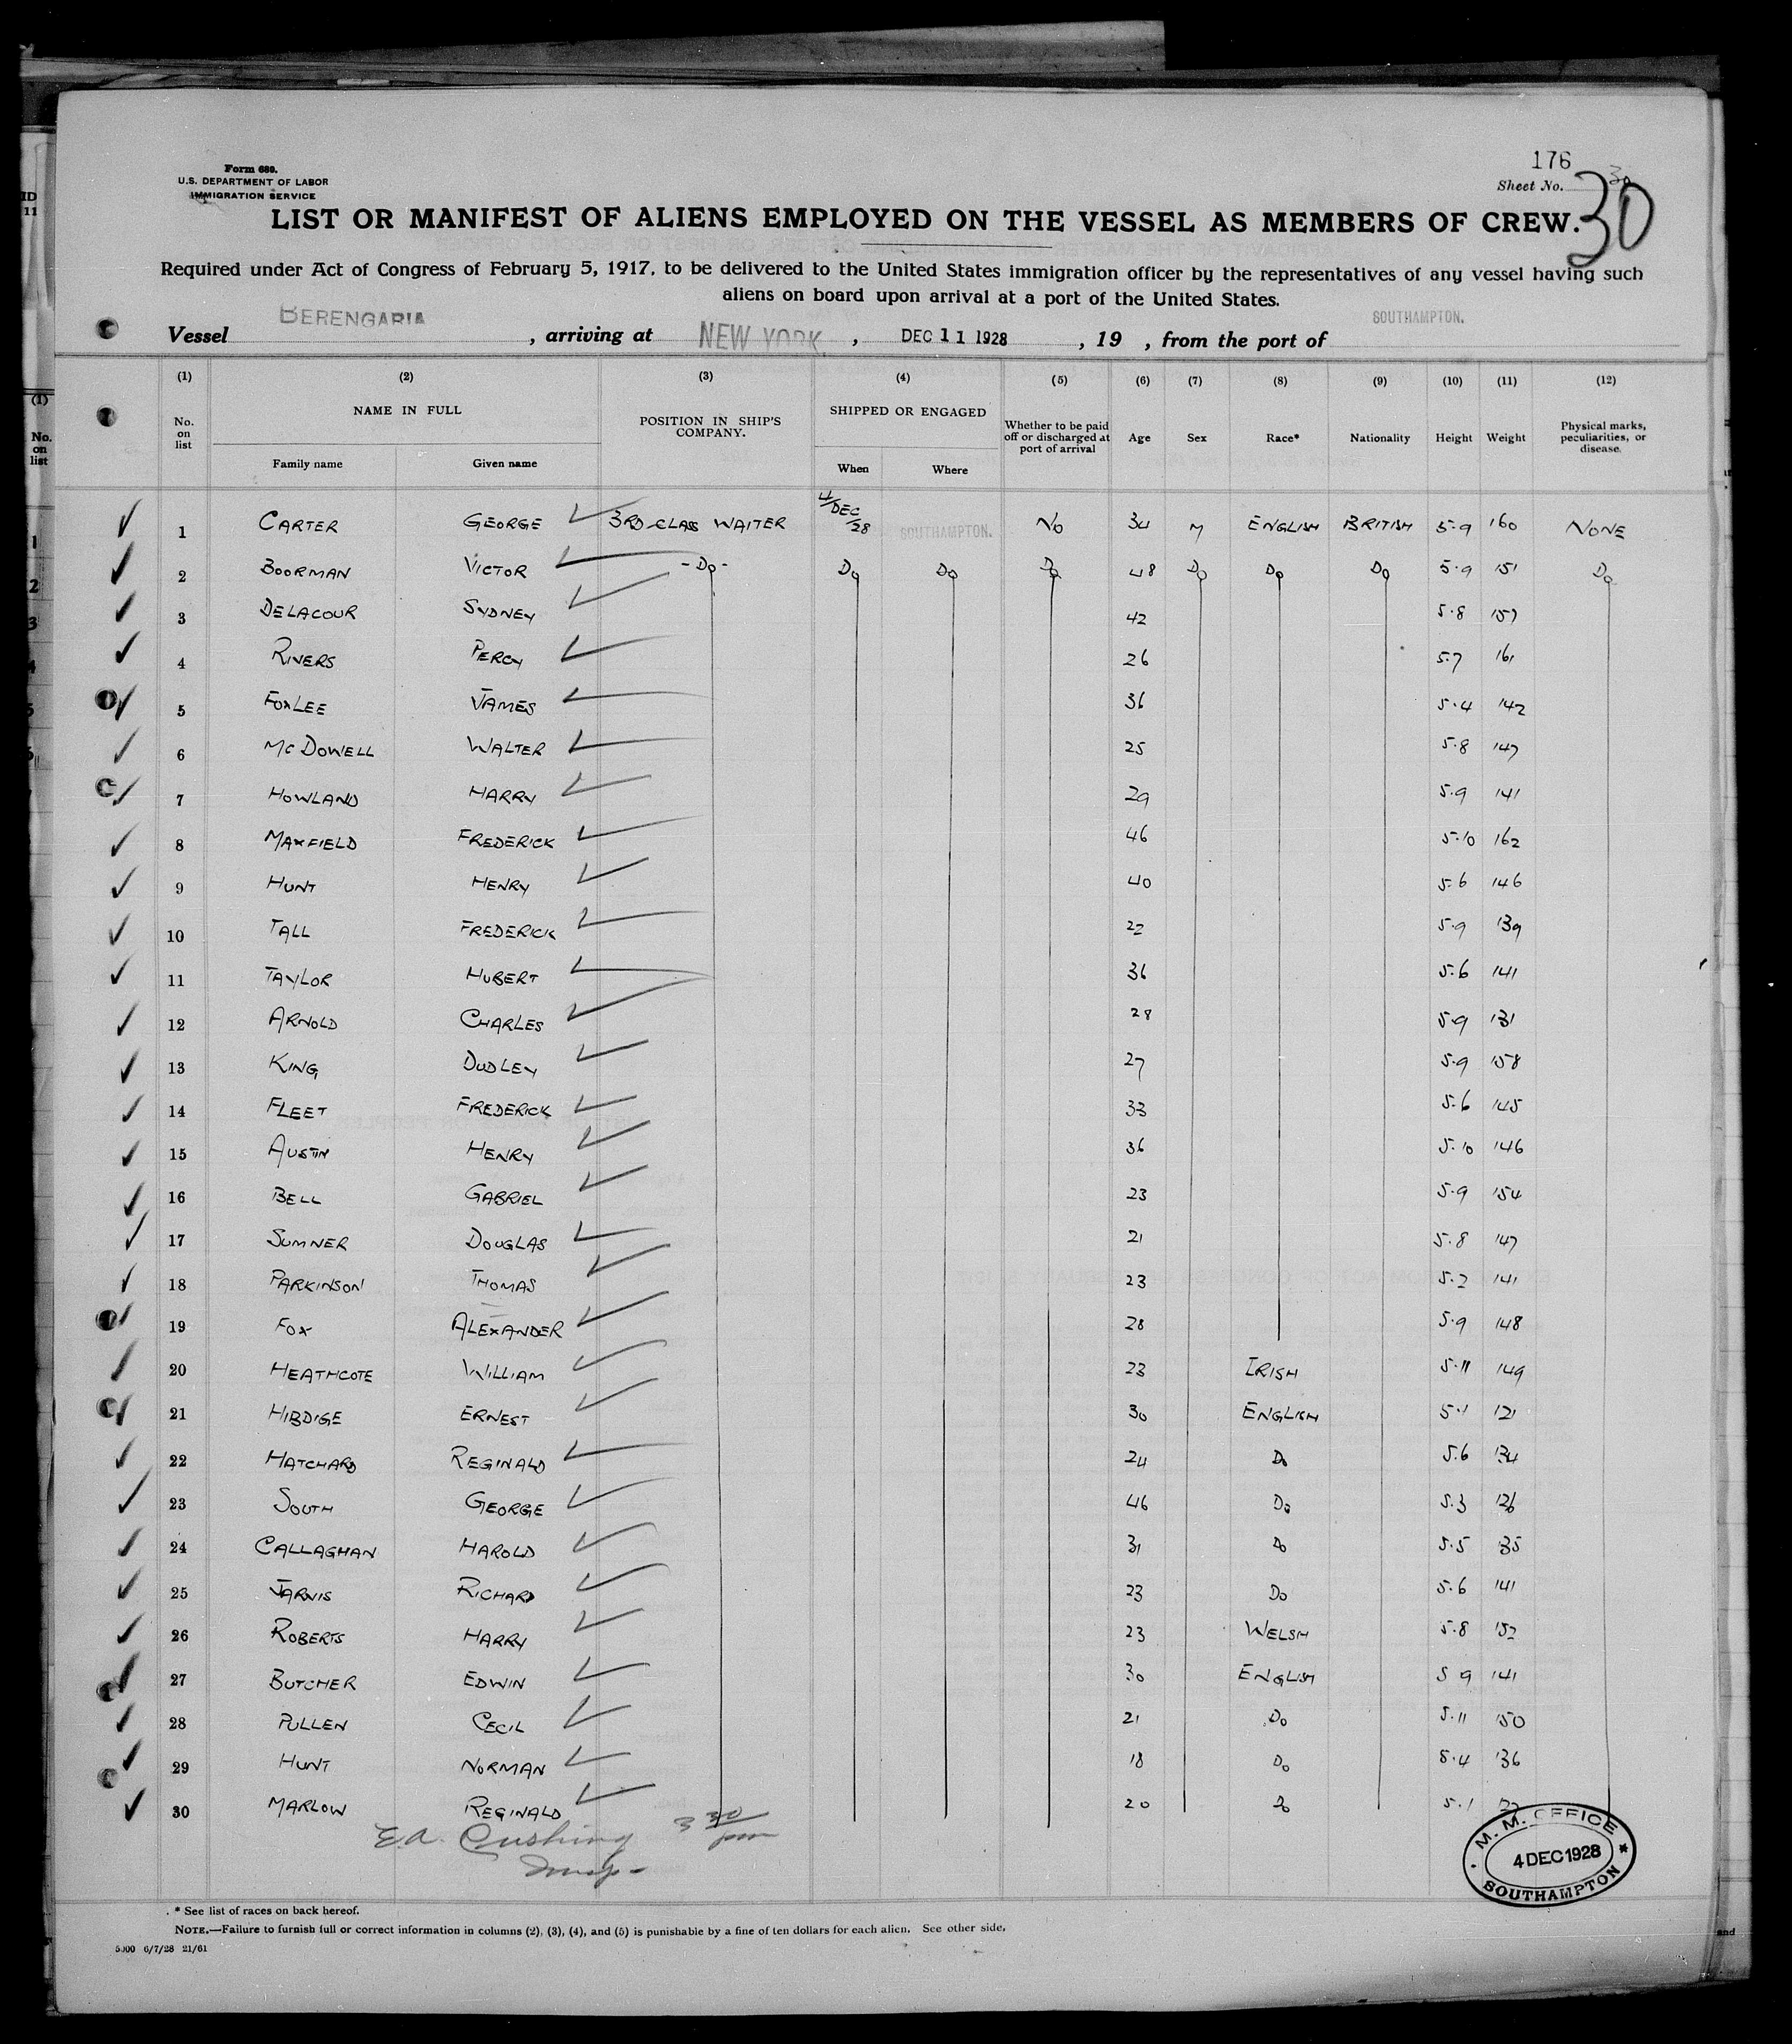 176
Form 689.
U.S. DEPARTMENT OF LABOR
IMMIGRATION SERVICE
Sheet No. 30
30
LIST OR MANIFEST OF ALIENS EMPLOYED ON THE VESSEL AS MEMBERS OF CREW.
Required under Act of Congress of February 5, 1917, to be delivered to the United States immigration officer by the representatives of any vessel having such
aliens on board upon arrival at a port of the United States.
Vessel BERENGARIA, arriving at NEW YORK, DEC 11 1928, 19 , from the port of SOUTHAMPTON.
(1) (2) (3) (4) (5) (6) (7) (8) (9) (10) (11) (12)
No. on list NAME IN FULL POSITION IN SHIP'S COMPANY. SHIPPED OR ENGAGED Whether to be paid off or discharged at port of arrival Age Sex Race* Nationality Height Weight Physical marks, peculiarities, or disease.
Family name Given name When Where
1 CARTER GEORGE 3RD CLASS WAITER 4/DEC/28 SOUTHAMPTON. NO 34 M ENGLISH BRITISH 5.9 160 NONE
2 BOORMAN VICTOR -DO- DO DO DO 48 DO DO DO 5.9 151 DO
3 DELACOUR SYDNEY 42 5.8 157
4 RIVERS PERCY 26 5.7 161
5 FOXLEE JAMES 36 5.4 142
6 MCDOWELL WALTER 25 5.8 147
7 HOWLAND HARRY 29 5.9 141
8 MAXFIELD FREDERICK 46 5.10 162
9 HUNT HENRY 40 5.6 146
10 TALL FREDERICK 22 5.9 139
11 TAYLOR HUBERT 36 5.6 141
12 ARNOLD CHARLES 28 5.9 131
13 KING DUDLEY 27 5.9 158
14 FLEET FREDERICK 33 5.6 145
15 AUSTIN HENRY 36 5.10 146
16 BELL GABRIEL 23 5.9 154
17 SUMNER DOUGLAS 21 5.8 147
18 PARKINSON THOMAS 23 5.2 141
19 FOX ALEXANDER 28 5.9 148
20 HEATHCOTE WILLIAM 23 IRISH 5.11 149
21 HIBDIGE ERNEST 30 ENGLISH 5.1 121
22 HATCHARD REGINALD 24 DO 5.6 134
23 SOUTH GEORGE 46 DO 5.3 126
24 CALLAGHAN HAROLD 31 DO 5.5 135
25 JARVIS RICHARD 23 DO 5.6 141
26 ROBERTS HARRY 23 WELSH 5.8 152
27 BUTCHER EDWIN 30 ENGLISH 5 9 141
28 PULLEN CECIL 21 DO 5.11 150
29 HUNT NORMAN 18 DO 5.4 136
30 MARLOW REGINALD 20 DO 5.1
E.A. Cushing 3 30 pm
Insp-
M. M. OFFICE
4 DEC 1928
SOUTHAMPTON
* See list of races on back hereof.
NOTE.—Failure to furnish full or correct information in columns (2), (3), (4), and (5) is punishable by a fine of ten dollars for each alien. See other side.
5000 6/7/28 21/61